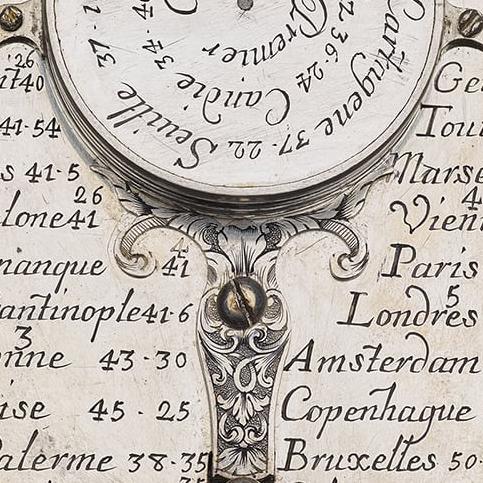 Seuille 37-1
Candie 34-4
Premier
2 36-24
Cartagene 37-22
26
it40
41-54
s 41-5
26
lone41
4
nanque 41
antinople41-6
3
nne 43-30
ise 45-25
alerme 38-35
Ge
Tou
Marse
4
Vien
Paris
5
Londres
Amsterdam
Copenhague
Bruxelles 50-